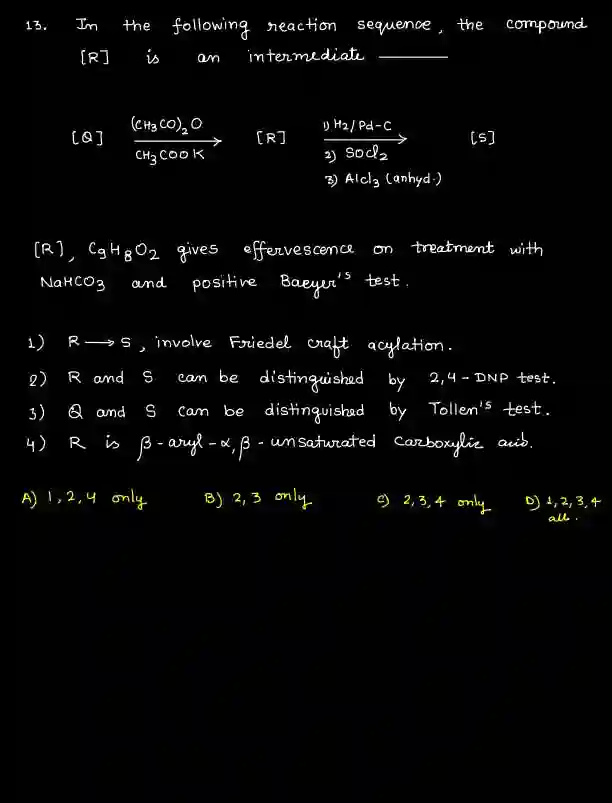 13. In the following reaction sequence, the compound
[R] is an intermediate ———
[Q] (CH3CO)2O [R] 1) H2/Pd-C [S]
CH3COOK 2) SOCl2
3) AlCl3 (anhyd.)
[R], C9H8O2 gives effervescence on treatment with
NaHCO3 and positive Baeyer's test.
1) R → S, involve Friedel craft acylation.
2) R and S can be distinguished by 2,4-DNP test.
3) Q and S can be distinguished by Tollen's test.
4) R is β-aryl-α,β-unsaturated carboxylic acid.
A) 1,2,4 only B) 2,3 only C) 2,3,4 only D) 1,2,3,4
all.